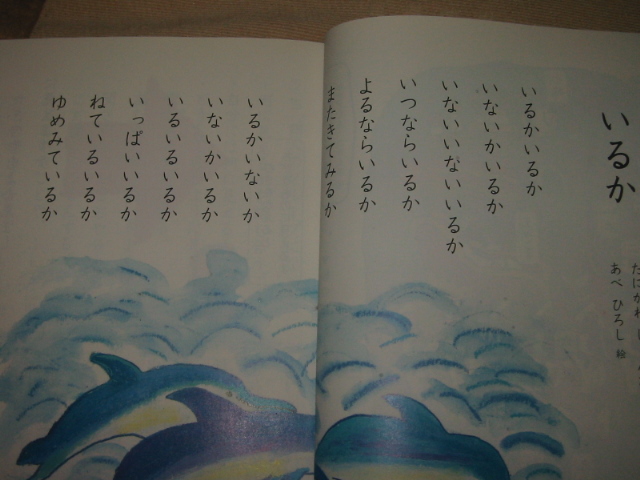 いるか
あべ ひろし 絵
いるかいるか
いないかいるか
いないいないいるか
いつならいるか
よるならいるか
またきてみるか
いるかいないか
いないかいるか
いるいるいるか
いっぱいいるか
ねているいるか
ゆめみているか